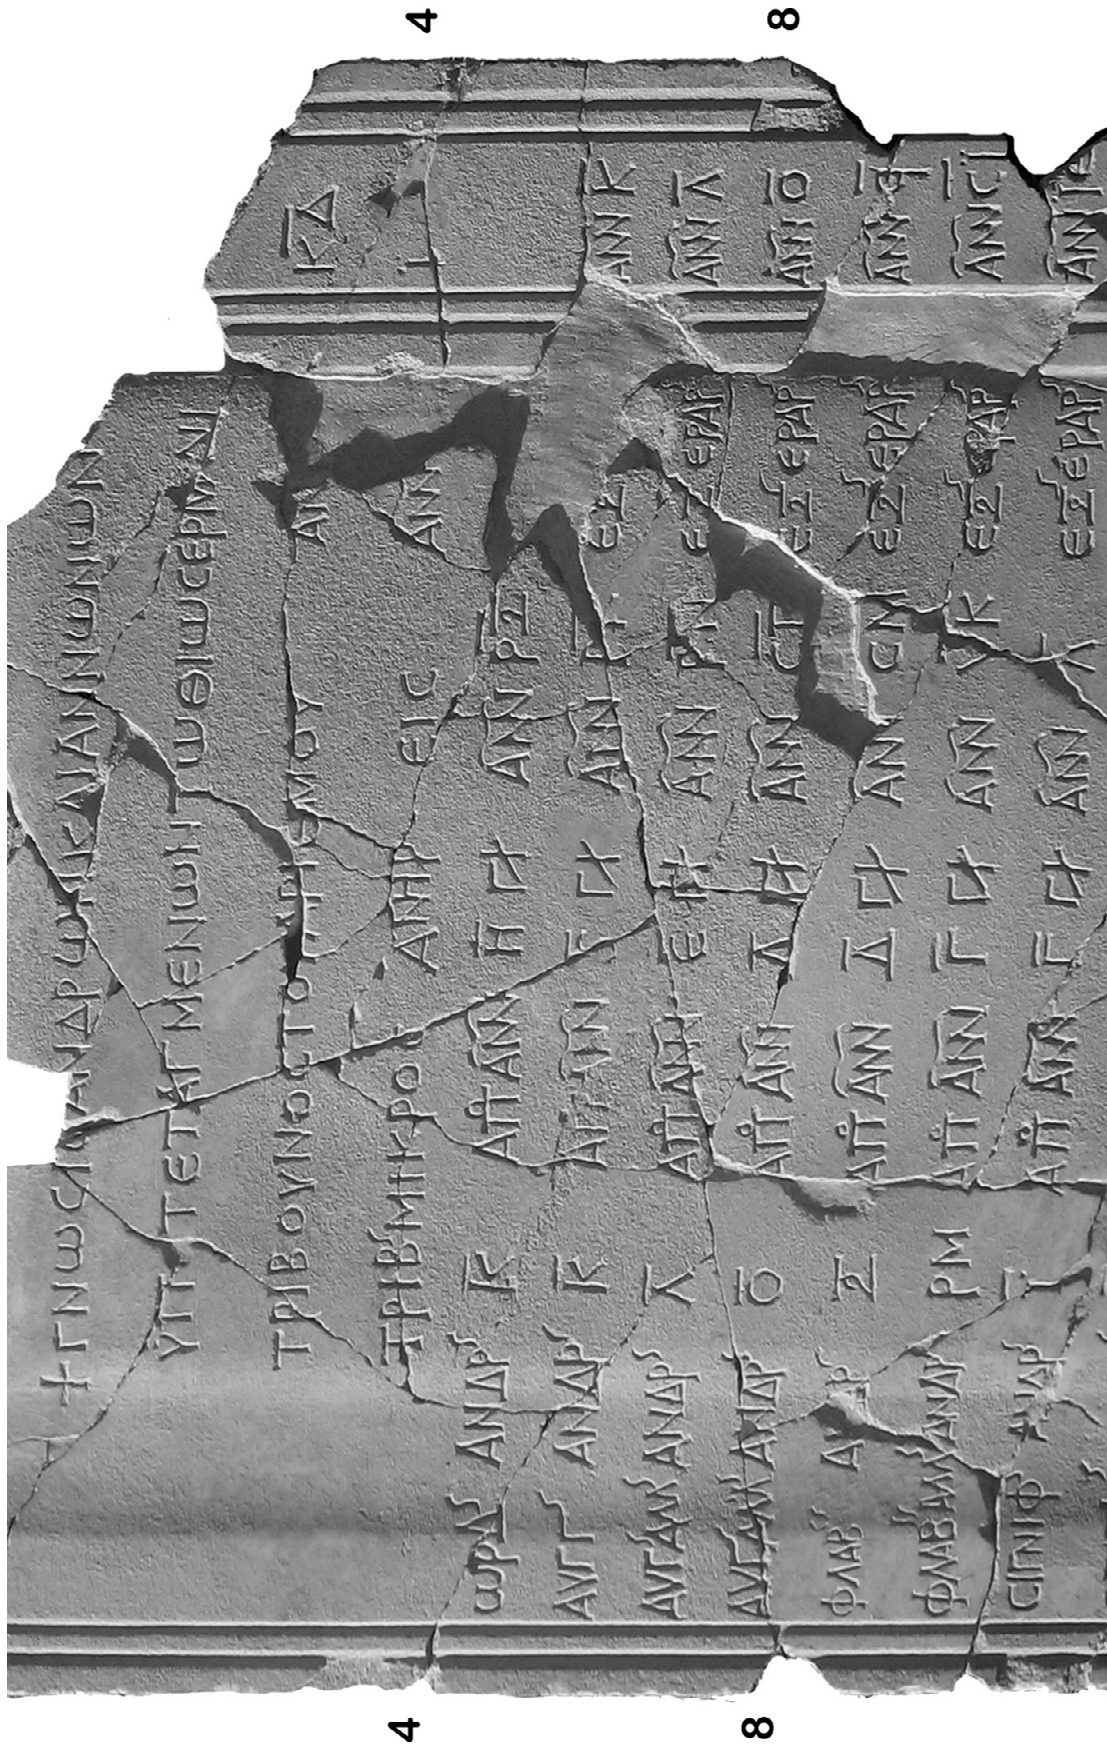 4 4
8 8
+ ΓΝωCΙC ΑΝΔΡωΝ ΚΑΙ ΑΝΝωΝΙωΝ
ΥΠΟΤΕΤΑΓΜΕΝωΝ Τω ΘΙω CΕΡΜΑΝΙ
ΤΡΙΒΟΥΝΟC ΤΟΥ ΑΡΙΘΜΟΥ ΑΝ ΚΔ
ΤΡΙΒ ΜΙΚΡΟC ΑΝΗΡ ΕΙC ΑΝΝ
ωΡΔ ΑΝΔΡ Κ ΑΠ ΑΝΝ Η ϟ ΑΝΝ ΡΞ
ΑΥΓΓ ΑΝΔΡ Κ ΑΠ ΑΝΝ Γ ϟ ΑΝΝ ΕΞ ΑΝΝ Κ
ΑΥΓΑΛ ΑΝΔΡ Λ ΑΠ ΑΝΝ Ε ϟ ΑΝΝ ΡΝ ΕΞ ΕΡΑΡ ΑΝΝ Λ
ΑΥΓΑΛ ΑΝΔΡ Ο ΑΠ ΑΝΝ Δ ϟ ΑΝΝ ΕΞ ΕΡΑΡ ΑΝΝ Ο
ΦΛΑΒ ΑΝΔΡ Ξ ΑΠ ΑΝΝ Δ ϟ ΑΝΝ CΜ ΕΞ ΕΡΑΡ ΑΝΝ
ΦΛΑΒ ΑΛ ΑΝΔΡ ΡΜ ΑΠ ΑΝΝ Γ ϟ ΑΝΝ ΥΚ ΕΞ ΕΡΑΡ ΑΝΝ CΙ
CΙΓΝΙΦ ΑΝΔΡ Ι ΑΠ ΑΝΝ Γ ϟ ΑΝΝ Λ ΕΞ ΕΡΑΡ ΑΝΝ ΙΕ